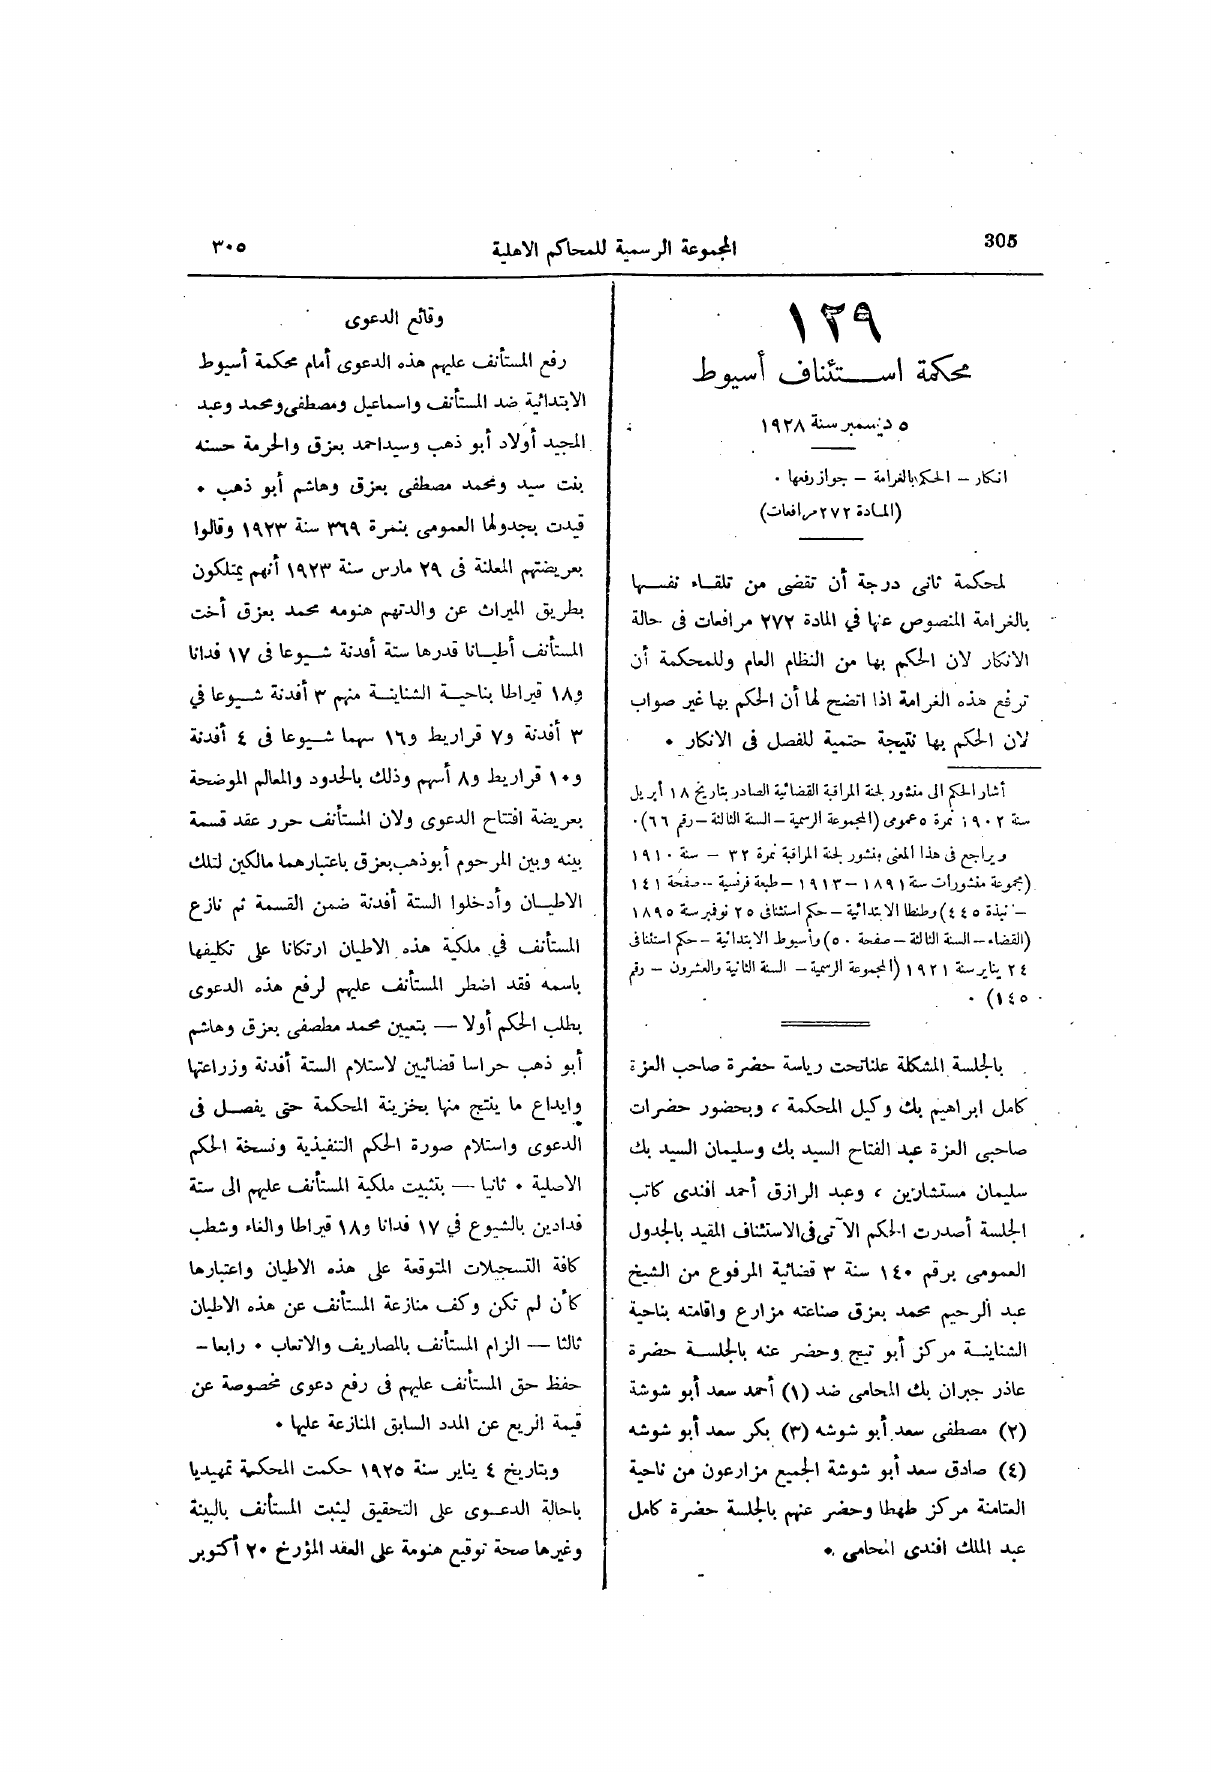 305
المجموعة الرسمية للمحاكم الاهلية
٣٠٥
١٢٩
محكمة استئناف أسيوط
٥ ديسمبر سنة ١٩٢٨
انكار – الحكم بالغرامة – جواز رفعها ٠
(المادة ٢٧٢ مرافعات)
لمحكمة ثانى درجة أن تقضى من تلقاء نفسها
بالغرامة المنصوص عنها في المادة ٢٧٢ مرافعات فى حالة
الانكار لان الحكم بها من النظام العام وللمحكمة أن
ترفع هذه الغرامة اذا اتضح لها أن الحكم بها غير صواب
لان الحكم بها نتيجة حتمية للفصل فى الانكار ٠
أشار الحكم الى منشور لجنة المراقبة القضائية الصادر بتاريخ ١٨ أبريل
سنة ١٩٠٢ نمرة ٥ عمومى (المجموعة الرسمية – السنة الثالثة – رقم ٦٦) ٠
ويراجع فى هذا المعنى منشور لجنة المراقبة نمرة ٣٢ – سنة ١٩١٠
(مجموعة منشورات سنة ١٨٩١ – ١٩١٣ – طبعة فرنسية – صفحة ١٤١
– نبذة ٤٤٥) وطنطا الابتدائية – حكم استئنافى ٢٥ نوفمبر سنة ١٨٩٥
(القضاء – السنة الثالثة – صفحة ٥٠) وأسيوط الابتدائية – حكم استئنافى
٢٤ يناير سنة ١٩٢١ (المجموعة الرسمية – السنة الثانية والعشرون – رقم
١٤٥) ٠
بالجلسة المشكلة علنا تحت رياسة حضرة صاحب العزة
كامل ابراهيم بك وكيل المحكمة ، وبحضور حضرات
صاحبى العزة عبد الفتاح السيد بك وسليمان السيد بك
سليمان مستشارين ، وعبد الرازق أحمد افندى كاتب
الجلسة أصدرت الحكم الآتى فى الاستئناف المقيد بالجدول
العمومى برقم ١٤٠ سنة ٣ قضائية المرفوع من الشيخ
عبد الرحيم محمد بعزق صناعته مزارع واقامته بناحية
الشناينة مركز أبو تيج وحضر عنه بالجلسة حضرة
عاذر جبران بك المحامى ضد (١) أحمد سعد أبو شوشة
(٢) مصطفى سعد أبو شوشه (٣) بكر سعد أبو شوشه
(٤) صادق سعد أبو شوشة الجميع مزارعون من ناحية
العتامنة مركز طهطا وحضر عنهم بالجلسة حضرة كامل
عبد الملك افندى المحامى ٠
وقائع الدعوى
رفع المستأنف عليهم هذه الدعوى أمام محكمة أسيوط
الابتدائية ضد المستأنف واسماعيل ومصطفى ومحمد وعبد
المجيد أولاد أبو ذهب وسيد احمد بعزق والحرمة حسنه
بنت سيد ومحمد مصطفى بعزق وهاشم أبو ذهب ٠
قيدت بجدولها العمومى بنمرة ٣٦٩ سنة ١٩٢٣ وقالوا
بعريضتهم المعلنة فى ٢٩ مارس سنة ١٩٢٣ أنهم يمتلكون
بطريق الميراث عن والدتهم هنومه محمد بعزق أخت
المستأنف أطيانا قدرها ستة أفدنة شيوعا فى ١٧ فدانا
و١٨ قيراطا بناحية الشناينة منهم ٣ أفدنة شيوعا في
٣ أفدنة و٧ قراريط و١٦ سهما شيوعا فى ٤ أفدنة
و١٠ قراريط و٨ أسهم وذلك بالحدود والمعالم الموضحة
بعريضة افتتاح الدعوى ولان المستأنف حرر عقد قسمة
بينه وبين المرحوم أبوذهب بعزق باعتبارهما مالكين لتلك
الاطيان وأدخلوا الستة أفدنة ضمن القسمة ثم نازع
المستأنف في ملكية هذه الاطيان ارتكانا على تكليفها
باسمه فقد اضطر المستأنف عليهم لرفع هذه الدعوى
بطلب الحكم أولا – بتعيين محمد مطصفى بعزق وهاشم
أبو ذهب حراسا قضائيين لاستلام الستة أفدنة وزراعتها
وايداع ما ينتج منها بخزينة المحكمة حتى يفصل فى
الدعوى واستلام صورة الحكم التنفيذية ونسخة الحكم
الاصلية ٠ ثانيا – بتثبيت ملكية المستأنف عليهم الى ستة
فدادين بالشيوع في ١٧ فدانا و١٨ قيراطا والغاء وشطب
كافة التسجيلات المتوقعة على هذه الاطيان واعتبارها
كأن لم تكن وكف منازعة المستأنف عن هذه الاطيان
ثالثا – الزام المستأنف بالمصاريف والاتعاب ٠ رابعا –
حفظ حق المستأنف عليهم فى رفع دعوى مخصوصة عن
قيمة الريع عن المدد السابق المنازعة عليها ٠
وبتاريخ ٤ يناير سنة ١٩٢٥ حكمت المحكمة تمهيديا
باحالة الدعوى على التحقيق ليثبت المستأنف بالبينة
وغيرها صحة توقيع هنومة على العقد المؤرخ ٢٠ أكتوبر